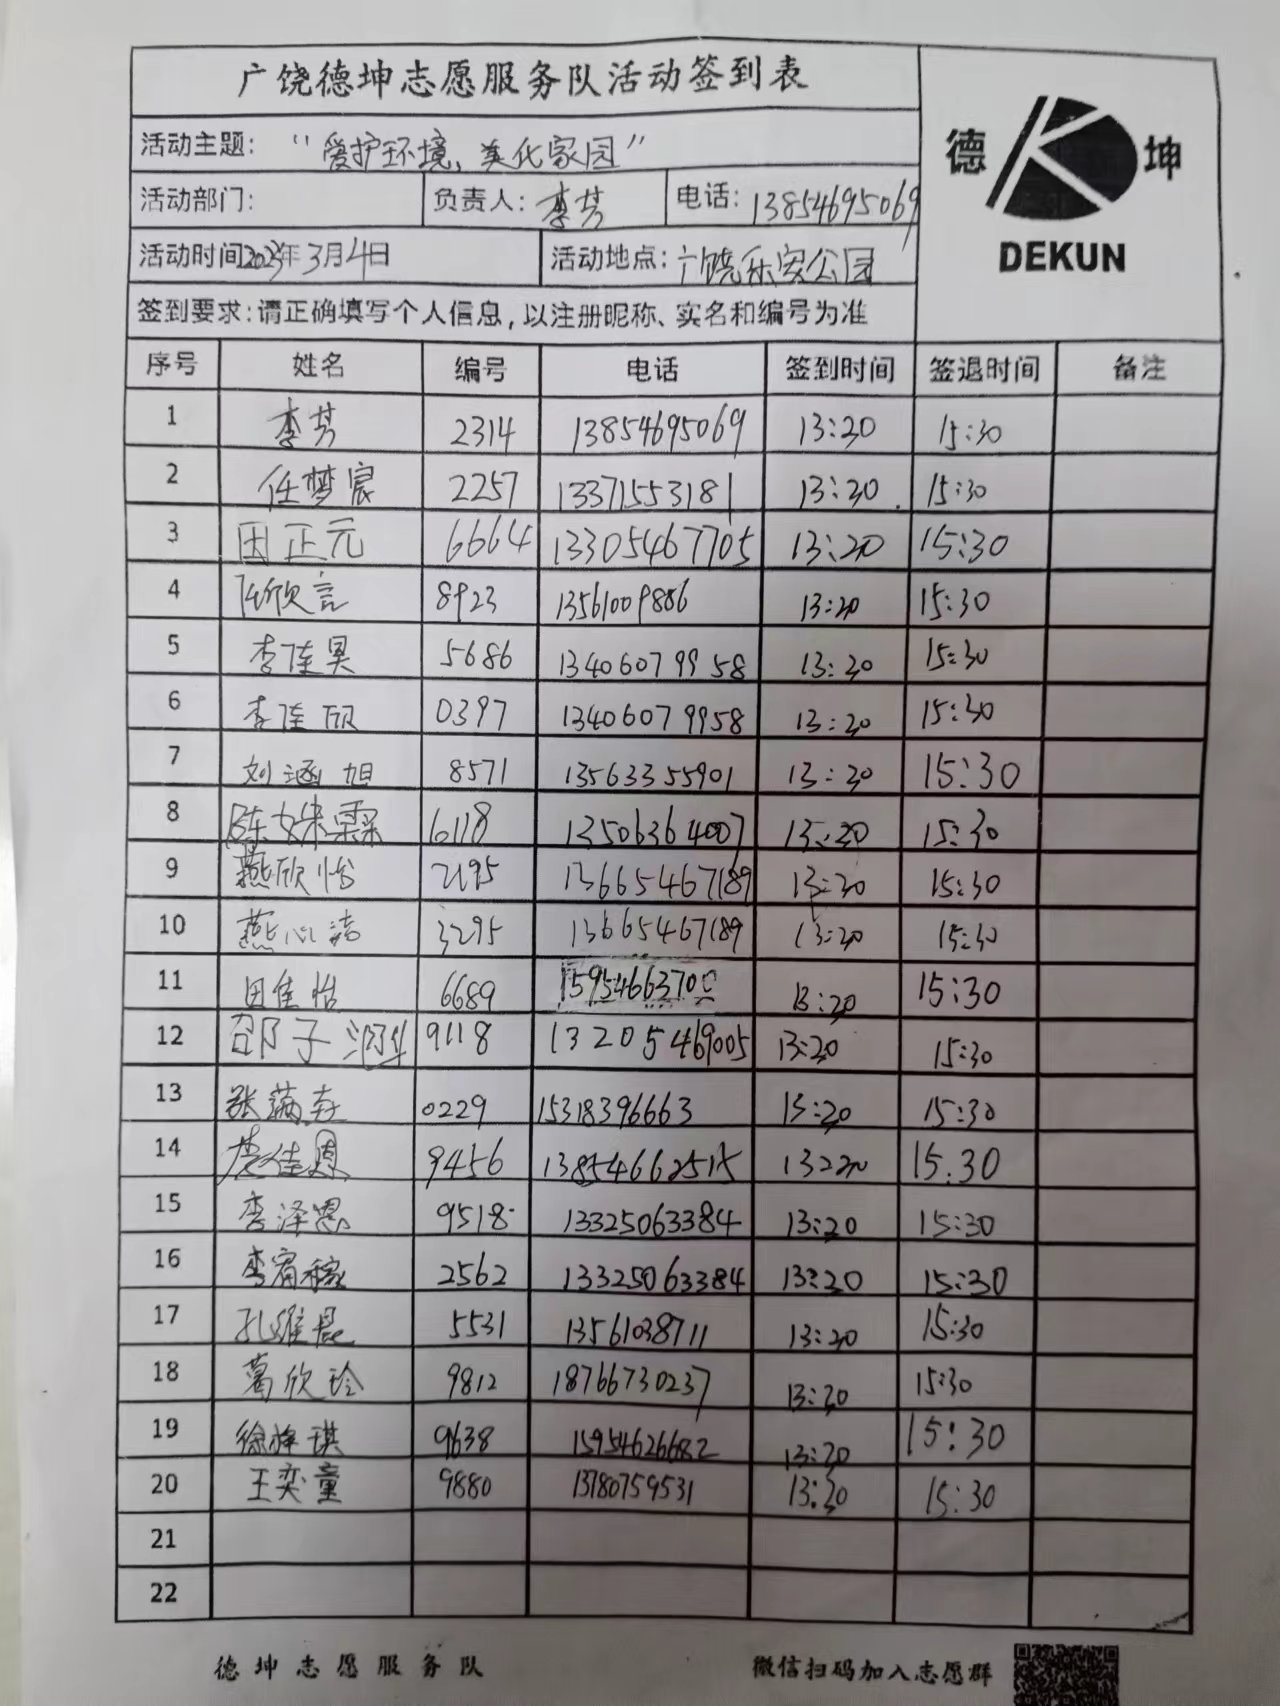 广饶德坤志愿服务队活动签到表
德 坤
DEKUN
活动主题: "爱护环境, 美化家园"
活动部门: 负责人: 李芳 电话: 13854695069
活动时间2023年3月4日 活动地点: 广饶乐安公园
签到要求: 请正确填写个人信息, 以注册昵称、实名和编号为准
序号 姓名 编号 电话 签到时间 签退时间 备注
1 李芳 2314 13854695069 13:20 15:30
2 任梦宸 2257 13371553181 13:20 15:30
3 田正元 6664 13305467705 13:20 15:30
4 欣言 8923 13561009886 13:20 15:30
5 李佳昊 5686 13406079958 13:20 15:30
6 李佳欣 0397 13406079958 13:20 15:30
7 刘涵旭 8571 13563355901 13:20 15:30
8 陈姝霖 6118 13506364007 13:20 15:30
9 燕欣怡 2195 13665467189 13:20 15:30
10 燕心洁 3295 13665467189 13:20 15:30
11 田佳怡 6689 1595466370 13:20 15:30
12 邵子 9118 13205469005 13:20 15:30
13 张 0229 15318396663 13:20 15:30
14 佳恩 9456 13:20 15:30
15 李泽恩 9518 13325063384 13:20 15:30
16 李 2562 13325063384 13:20 15:30
17 孔维晨 5531 13561038711 13:20 15:30
18 葛欣玲 9812 18766730237 13:20 15:30
19 徐梓琪 9638 15954626682 13:20 15:30
20 王奕童 9880 13780759531 13:20 15:30
21
22
德坤志愿服务队 微信扫码加入志愿群